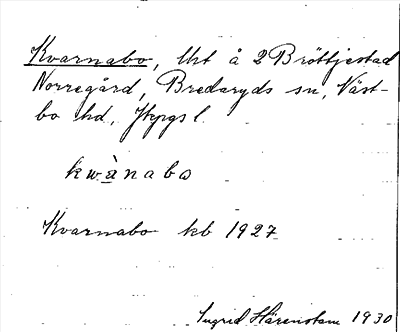 Kvarnabo, lht å 2 Bröttjestad
Norregård, Bredaryds sn, Väst-
bo hd, Jkpgs l.
kwànabo
Kvarnabo kb 1927
Ingrid Härenstam 1930